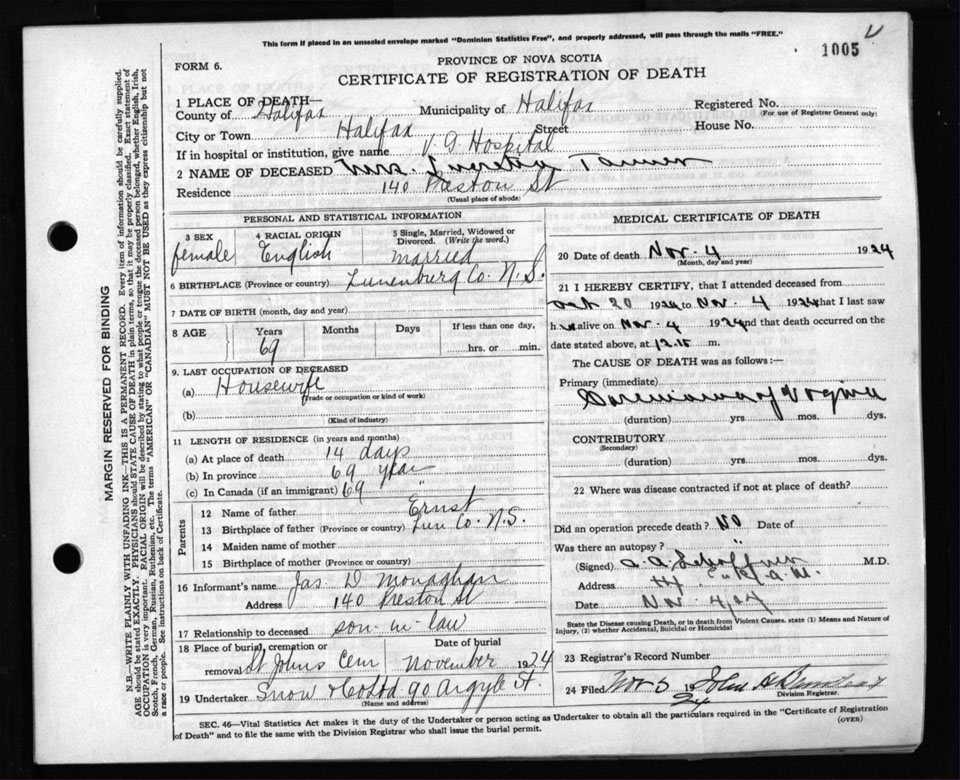 This form if placed in an unsealed envelope marked "Dominion Statistics Free", and properly addressed, will pass through the mails "FREE."
1005
FORM 6.
PROVINCE OF NOVA SCOTIA
CERTIFICATE OF REGISTRATION OF DEATH
1 PLACE OF DEATH—
County of Halifax Municipality of Halifax Registered No.
(For use of Registrar General only)
City or Town Halifax Street House No.
If in hospital or institution, give name V. G Hospital
2 NAME OF DECEASED Mrs. Tanner
Residence 140 Preston St
(Usual place of abode)
PERSONAL AND STATISTICAL INFORMATION
3 SEX 4 RACIAL ORIGIN 5 Single, Married, Widowed or Divorced. (Write the word.)
female English married
6 BIRTHPLACE (Province or country) Lunenburg Co. N.S.
7 DATE OF BIRTH (month, day and year)
8 AGE Years Months Days If less than one day,
69 hrs. or min.
9. LAST OCCUPATION OF DECEASED
(a) Housewife
(Trade or occupation or kind of work)
(b)
(Kind of industry)
11 LENGTH OF RESIDENCE (in years and months)
(a) At place of death 14 days
(b) In province 69 year
(c) In Canada (if an immigrant) 69 "
Parents
12 Name of father Ernst
13 Birthplace of father (Province or country) Lun Co. N.S.
14 Maiden name of mother
15 Birthplace of mother (Province or country)
16 Informant's name Jas. D. Monaghan
Address 140 Preston St
17 Relationship to deceased son-in-law
18 Place of burial, cremation or removal Date of burial
St Johns Cem November 1924
19 Undertaker Snow & 90 Argyle St.
(Name and address)
MEDICAL CERTIFICATE OF DEATH
20 Date of death Nov. 4 1924
(Month, day and year)
21 I HEREBY CERTIFY, that I attended deceased from
Oct 20 1924 to Nov. 4 1924 that I last saw
h er alive on Nov. 4 1924 and that death occurred on the
date stated above, at 12.15 m.
The CAUSE OF DEATH was as follows:—
Primary (immediate)
of
(duration) yrs mos. dys.
CONTRIBUTORY
(Secondary)
(duration) yrs. mos. dys.
22 Where was disease contracted if not at place of death?
Did an operation precede death? No Date of
Was there an autopsy? "
(Signed) M.D.
Address
Date Nov 4/24
State the Disease causing Death, or in death from Violent Causes, state (1) Means and Nature of Injury, (2) whether Accidental, Suicidal or Homicidal
23 Registrar's Record Number
24 Filed Nov 5 19 John
Division Registrar.
SEC. 46—Vital Statistics Act makes it the duty of the Undertaker or person acting as Undertaker to obtain all the particulars required in the "Certificate of Registration
of Death" and to file the same with the Division Registrar who shall issue the burial permit.
(OVER)
MARGIN RESERVED FOR BINDING
N.B.—WRITE PLAINLY WITH UNFADING INK—THIS IS A PERMANENT RECORD. Every item of information should be carefully supplied.
AGE should be stated EXACTLY. PHYSICIANS should STATE CAUSE OF DEATH in plain terms, so that it may be properly classified. Exact statement of
OCCUPATION is very important. RACIAL ORIGIN will be described by stating to what people or tongue the deceased person belonged, whether English, Irish,
Scotch, French, German, Russian, Ruthenian, etc. The terms "AMERICAN" OR "CANADIAN" MUST NOT BE USED as they express citizenship but not
a race or people. See instructions on back of Certificate.